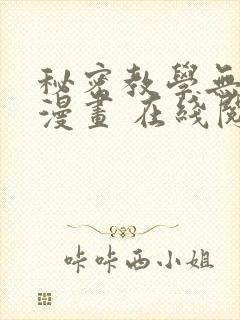 秘密教學無
漫畫 在綫閱
咔咔西小姐